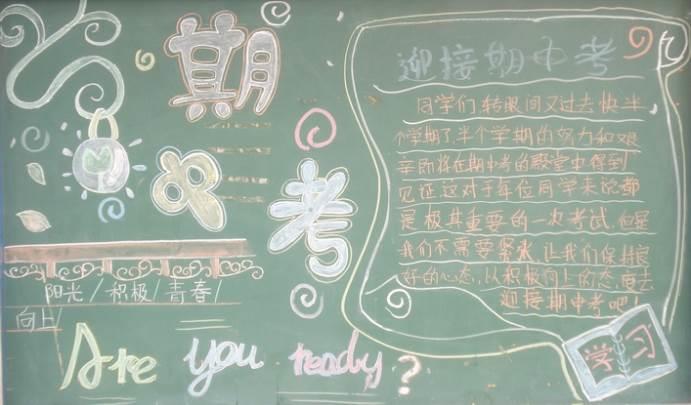 期
中
考
阳光/积极/青春/
向上/
Are you ready?
迎接期中考
同学们转眼间又过去快半
个学期了,半个学期的努力和艰
辛即将在期中考的殿堂中得到
见证,这对于每位同学来说都
是极其重要的一次考试,但是
我们不需要紧张,让我们保持良
好的心态,以积极向上的态度去
迎接期中考吧!
学习